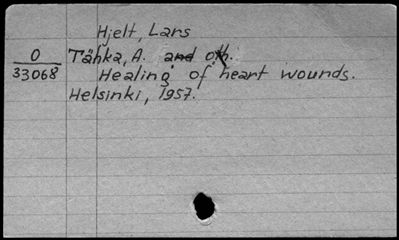 Hjelt, Lars
O
33068
Tähka, A. and oth.
Healing of heart wounds.
Helsinki, 1957.